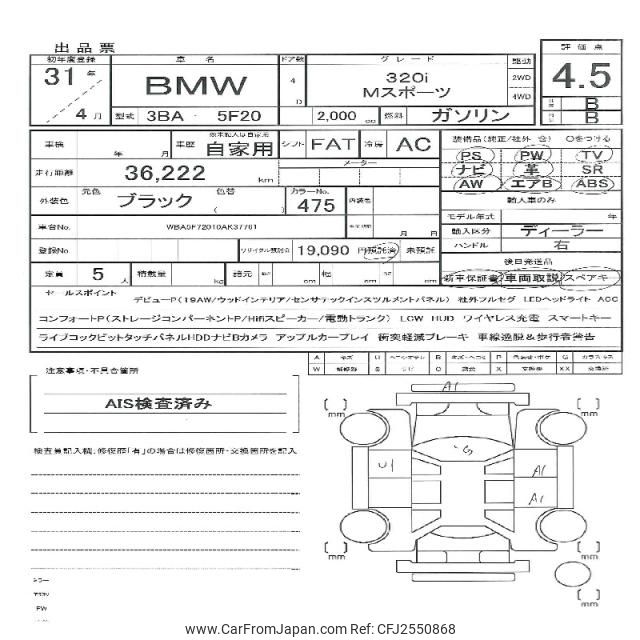 出品票
初年度登録 車名 ドア数 グレード 駆動 評価点
31年 BMW 4 D 320i 2WD 4.5
4月 Mスポーツ 4WD
型式 3BA - 5F20 2,000 cc 燃料 ガソリン B
B
車検 年 月 車歴 自家用 シフト FAT 冷房 AC 装備品(純正/社外 含) ○をつける
PS PW TV
走行距離 36,222 km メーター ナビ 革 SR
AW エアB ABS
外装色 元色 ブラック 色替 ( ) カラーNo. 475 内装色 輸入車のみ
モデル年式 年
車台No. WBA5F72010AK37761 月 日 輸入区分 ディーラー
登録No. リサイクル預託金 19,090 円預託済 未預託 ハンドル 右
後日発送品
定員 5人 積載量 kg 諸元 cm 幅 cm cm 新車保証書 車両取説 スペアキ
セールスポイント
デビューP(19AW/ウッドインテリア/センサテックインスツルメントパネル) 社外フルセグ LEDヘッドライト ACC
コンフォートP(ストレージコンパーメントP/Hifiスピーカー/電動トランク) LCW HUD ワイヤレス充電 スマートキー
ライブコックピットタッチパネルHDDナビBカメラ アップルカープレイ 衝突軽減ブレーキ 車線逸脱&歩行者警告
A キズ U B キズ・ヘコミ P G
W S C XX
注意事項・不具合箇所
AIS検査済み
検査員記入欄:修復歴「有」の場合は修復箇所・交換箇所を記入
A1
[ ] mm [ ] mm
S
U1 A1
A1
[ ] mm [ ] mm
[ ] mm
PW
www.CarFromJapan.com Ref: CFJ2550868